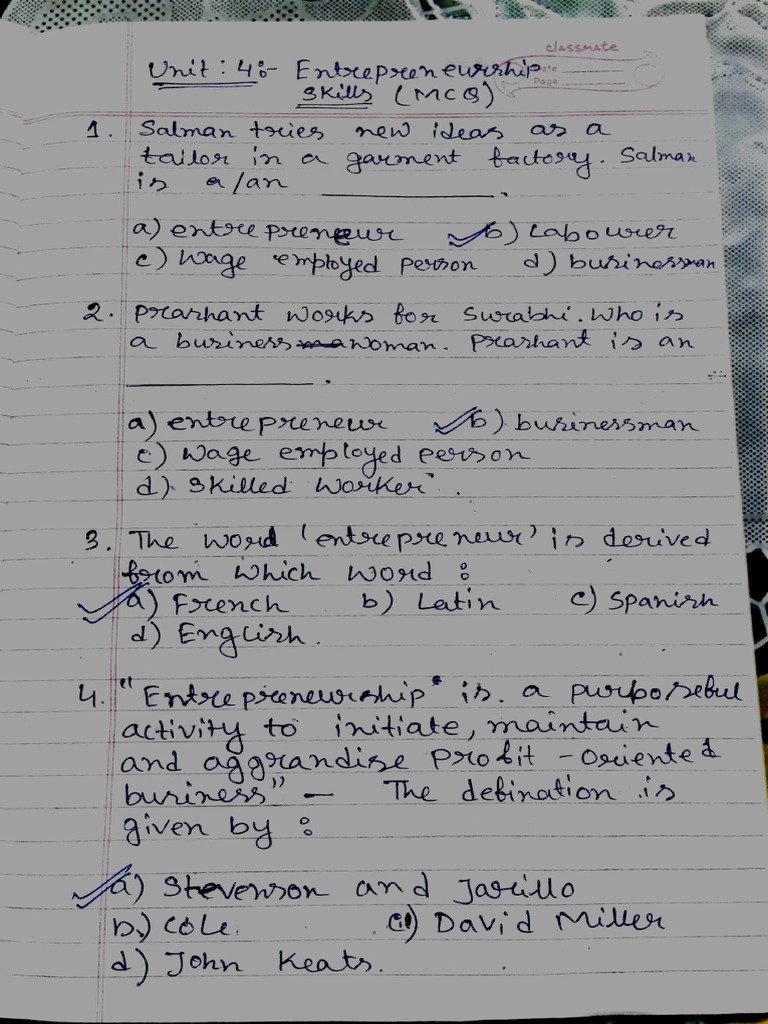 classmate
Date
Page
Unit : 4:- Entrepreneurship
Skills (MCQ)
1. Salman tries new ideas as a
tailor in a garment factory. Salman
is a/an ____________.
a) entrepreneur b) Labourer
c) Wage employed person d) businessman
2. Prashant works for Surabhi. Who is
a business woman. Prashant is an
____________.
a) entrepreneur b) businessman
c) Wage employed person
d) Skilled Worker.
3. The word 'entrepreneur' is derived
from which word :
a) French b) Latin c) Spanish
d) English.
4. "Entrepreneurship" is a purposeful
activity to initiate, maintain
and aggrandise profit-oriented
business" — The defination is
given by :
a) Stevenson and Jarillo
b) Cole. c) David Miller
d) John Keats.